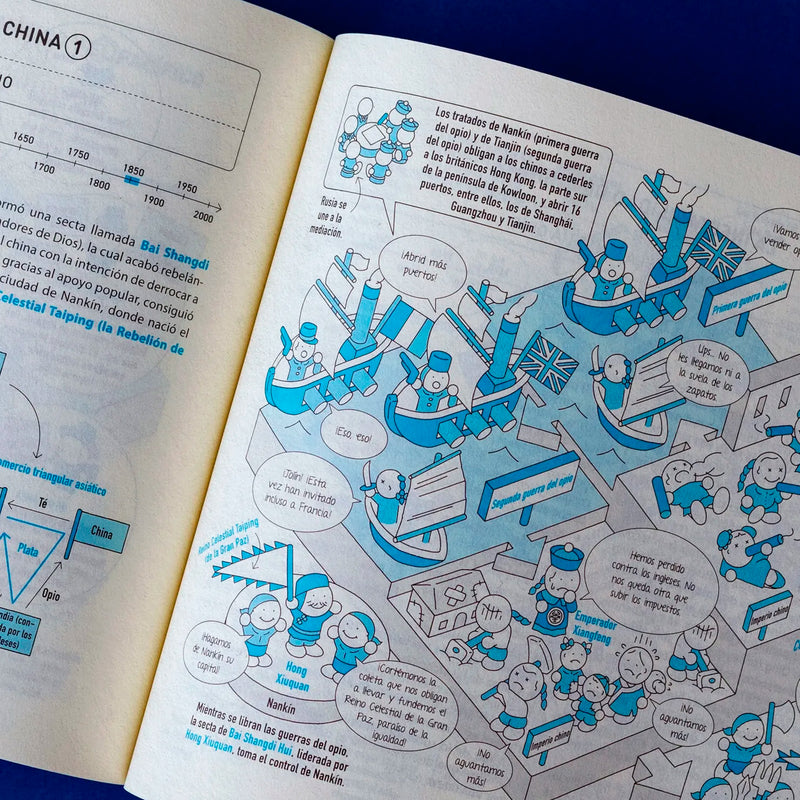 CHINA 1
1650
1750
1850
1950
1700
1800
1900
2000
ormó una secta llamada Bai Shangdi
adores de Dios), la cual acabó rebelán-
l china con la intención de derrocar a
gracias al apoyo popular, consiguió
ciudad de Nankín, donde nació el
elestial Taiping (la Rebelión de
omercio triangular asiático
Té
China
Plata
Opio
ndia (con-
da por los
eses)
Los tratados de Nankín (primera guerra
del opio) y de Tianjin (segunda guerra
del opio) obligan a los chinos a cederles
a los británicos Hong Kong, la parte sur
de la península de Kowloon, y abrir 16
puertos, entre ellos, los de Shanghái,
Guangzhou y Tianjin.
Rusia se
une a la
mediación.
¡Abrid más
puertos!
¡Vamos
vender op
Primera guerra del opio
Ups... No
les llegamos ni a
la suela de los
zapatos.
¡Eso, eso!
¡Jolín! ¡Esta
vez han invitado
incluso a Francia!
Segunda guerra del opio
Reino Celestial Taiping
(de la Gran Paz)
¡Hagamos
de Nankín su
capital!
Hong
Xiuquan
Nankín
¡Cortémonos la
coleta que nos obligan
a llevar y fundemos el
Reino Celestial de la Gran
Paz, paraíso de la
igualdad!
Hemos perdido
contra los ingleses. No
nos queda otra que
subir los impuestos.
Emperador
Xiangfeng
Imperio chino
Imperio chino
¡No
aguantamos
más!
¡No
aguantamos
más!
Mientras se libran las guerras del opio,
la secta de Bai Shangdi Hui, liderada por
Hong Xiuquan, toma el control de Nankín.